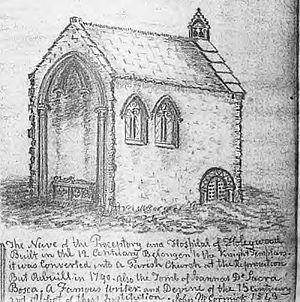 The Nave of the Precestory and Hospital of Holywood
Built in the 12 Centuary Belongen to the Knight Templars
it was Converted into A Parish Church at the Reformation
But Rebuilt in 1790. also the Tomb of Joannas De Sacra
Bosca, A Famous Writer and Devine of the 13 Centuary
and of this Institution. John McCormick 1843